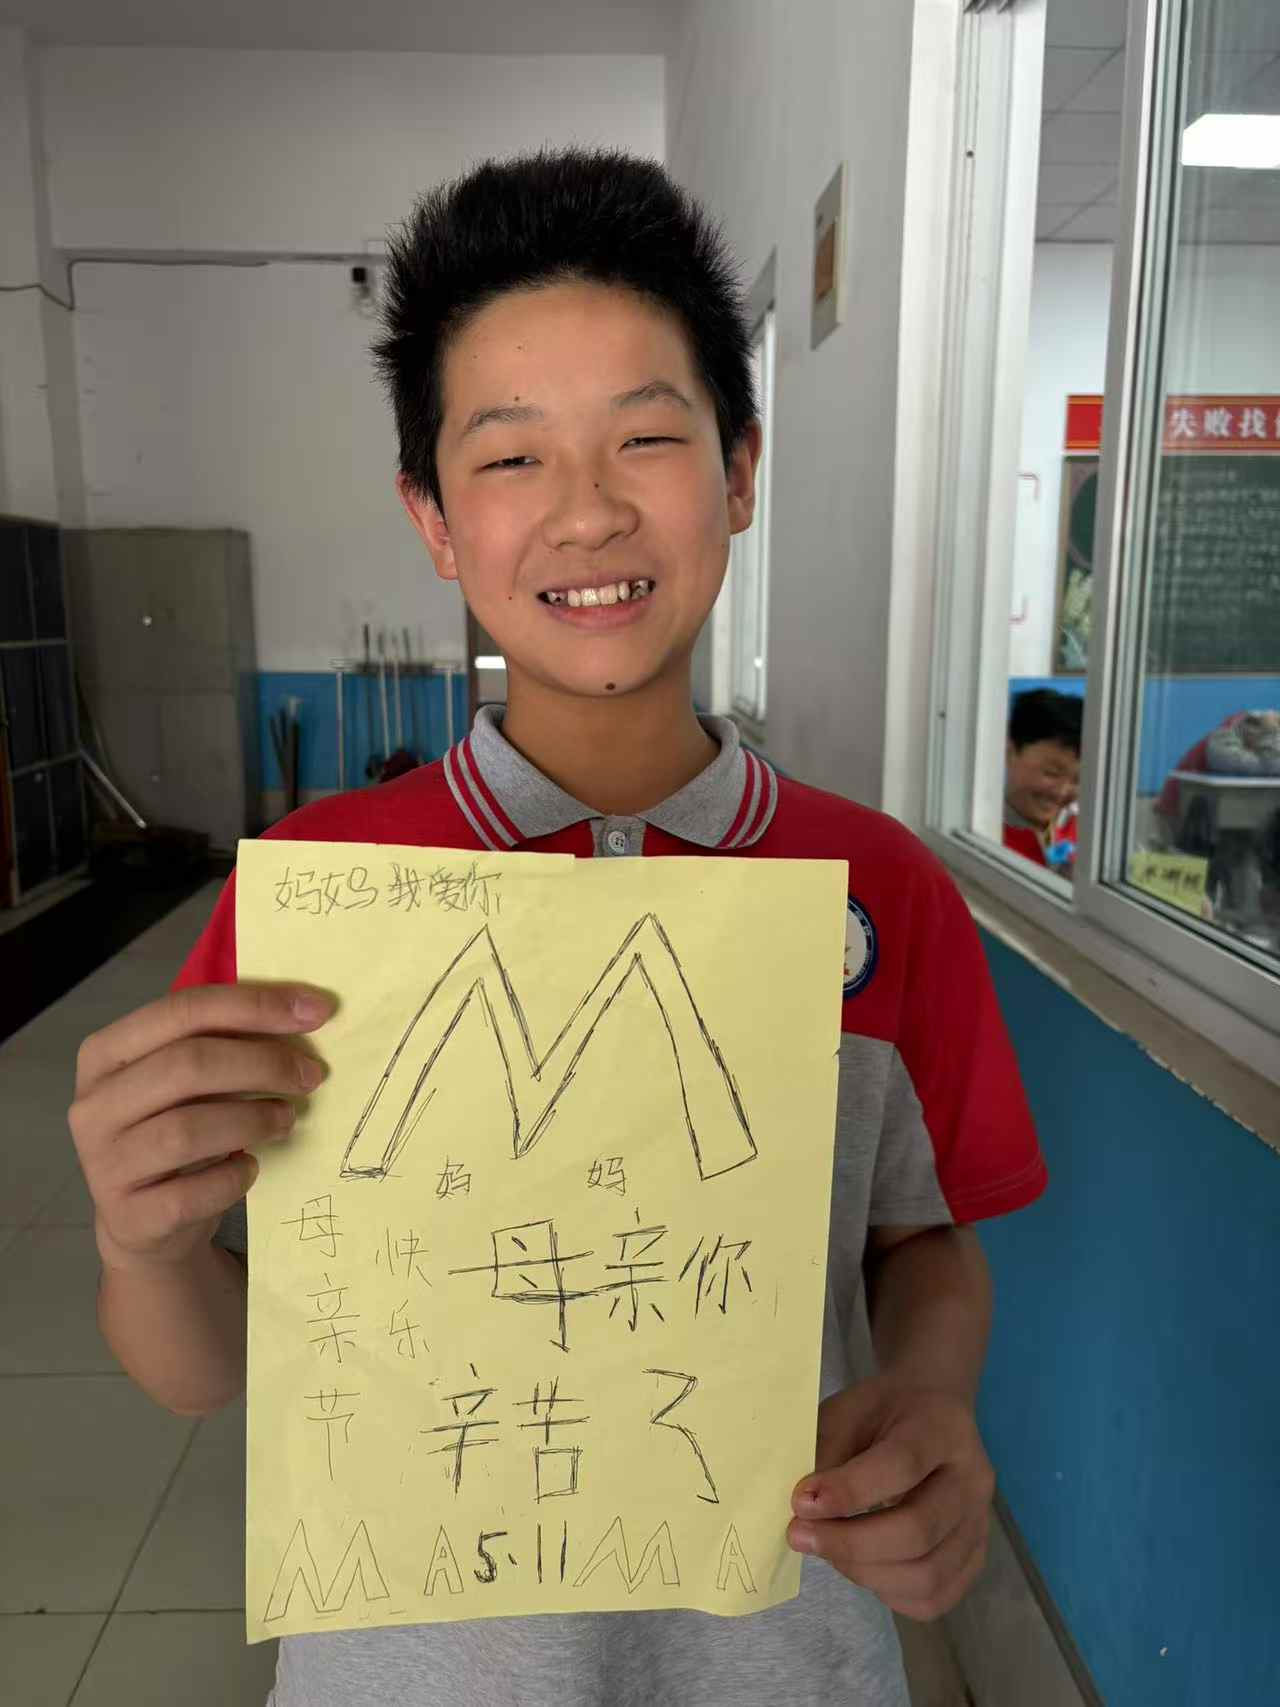 失败找
妈妈我爱你
M
妈 妈
母亲节
快乐
母亲你
辛苦了
MA 5.11 MA